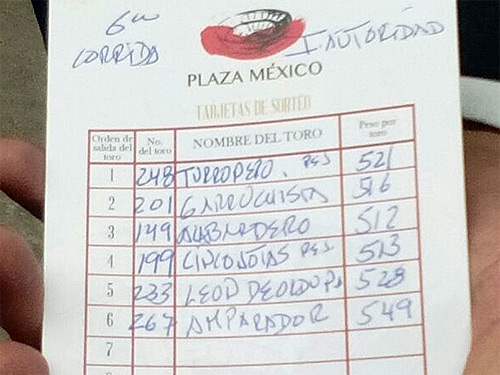 6ta I. AUTORIDAD
CORRIDA
PLAZA MÉXICO
TARJETAS DE SORTEO
Orden de salida del toro No. del toro NOMBRE DEL TORO Peso por toro
1 248 TURROPERO. RES 521
2 201 GARROCHISTA 516
3 149 ALABARDERO 512
4 199 CINCO JOTAS RES 513
5 233 LEON DEOLDUPA 528
6 267 AMPARADOR 549
7